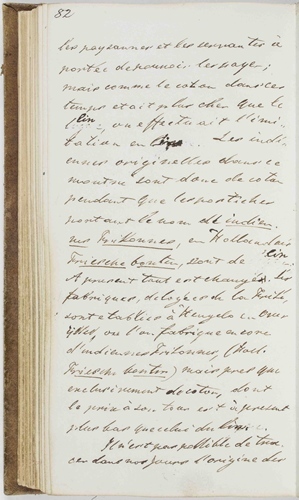 82
les paysannes et les servantes à
portée de pouvoir les payer;
mais comme le coton dans ces
temps etait plus cher que le
lin, on effectuait l'imi-
tation en lin. Les indi-
ennes originelles dans ce
montre sont donc de coton
pendant que les pastiches
portant le nom de indien-
nes Frisonnes, en Hollandais
Friesche bonten, sont de lin.
A present tout est changé. Les
fabriques, delogées de la Frise,
sont etablies à Hengelo en Over
ijssel, ou l'on fabrique encore
d'indiennes Frisonnes, (Holl.
Friesche bonten) mais presque
exclusivement de coton, dont
le prix à son tour est à present
plus bas que celui du lin.
Il n'est pas possible de tra-
cer dans nos jours l'origine des